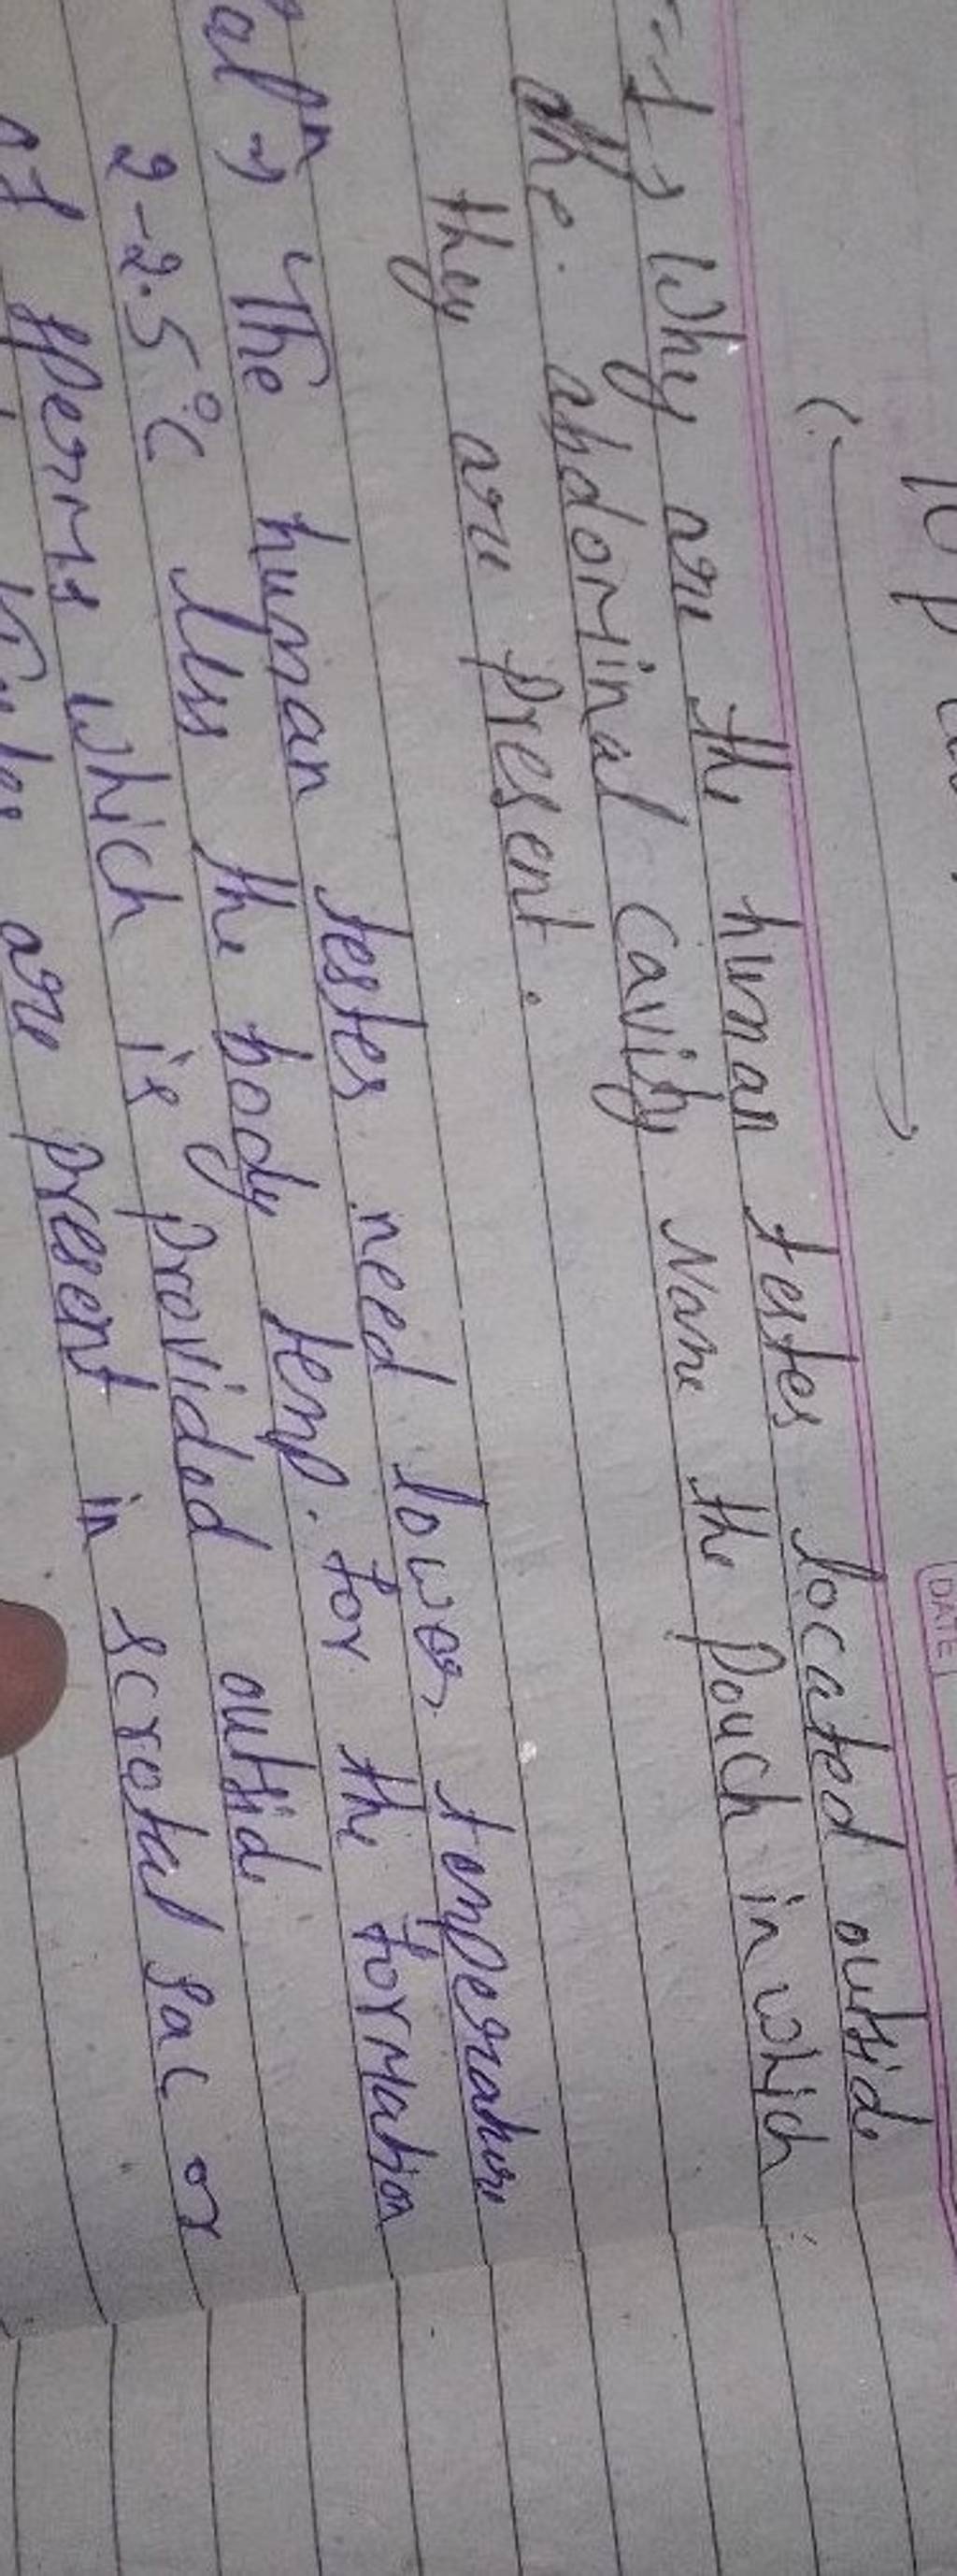 DATE
Why are the human testes located outside
the abdominal cavity Name the Pouch in which
they are present.
The human testes need lower temperature
2-2.5°C less the body temp. for the formation
of sperms which is provided outside
are present in scrotal sac or